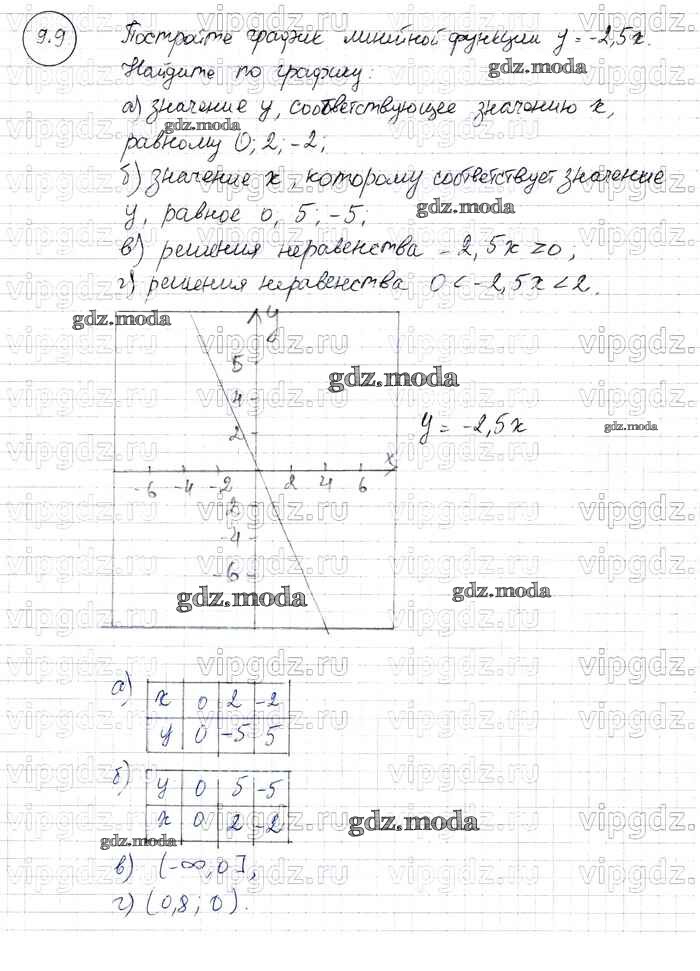 9.9 Постройте график линейной функции y = -2,5x.
Найдите по графику:
gdz.moda
а) значение y, соответствующее значению x,
gdz.moda
равному 0; 2; -2;
б) значение x, которому соответствует значение
y, равное 0, 5; -5;
gdz.moda
в) решения неравенства -2,5x ≥ 0;
г) решения неравенства 0 < -2,5x < 2.
gdz.moda
y
5
gdz.moda
4
y = -2,5x
gdz.moda
2
x
-6 -4 -2 2 4 6
-2
-4
-6
gdz.moda
gdz.moda
а) x 0 2 -2
y 0 -5 5
б) y 0 5 -5
x 0 2 -2
gdz.moda
gdz.moda
в) (-∞, 0],
г) (0,8; 0).
vipgdz.ru